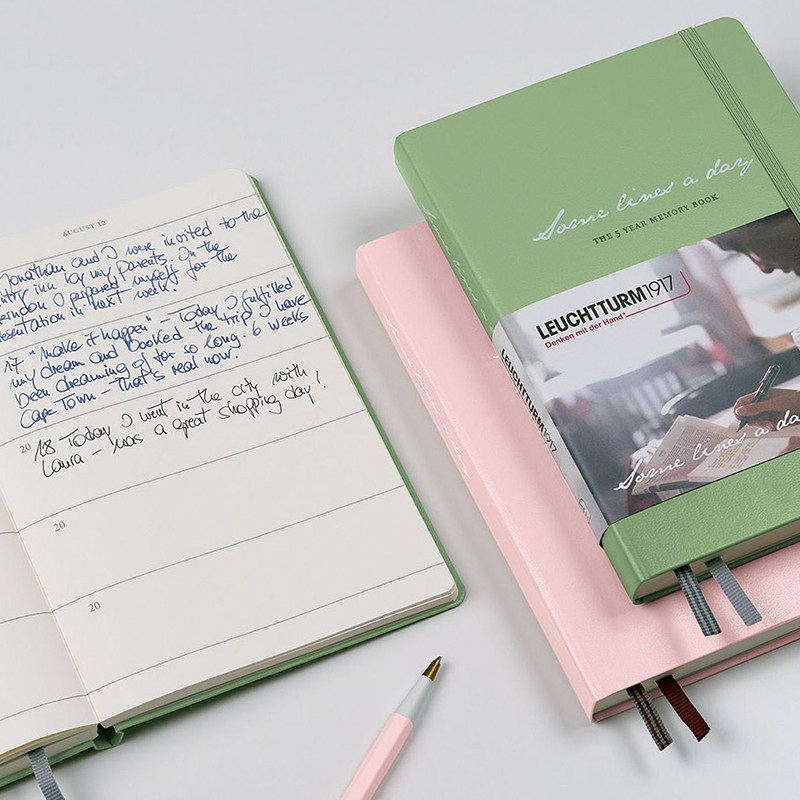 AUGUST 12
Jonathan and I were invited to the
inn by my Parents. In the
I prepared myself for the
in next week.
17 "Make it happen" - Today I fulfilled
my dream and booked the trip I have
been dreaming of for so long. 6 weeks
Cape Town - that's real now!
20 18 Today I went in the city with
Laura - was a great shopping day!
20
20
Some lines a day
THE 5 YEAR MEMORY BOOK
LEUCHTTURM1917
Denken mit der Hand*
LEUCHTTURM1917
Some lines a da